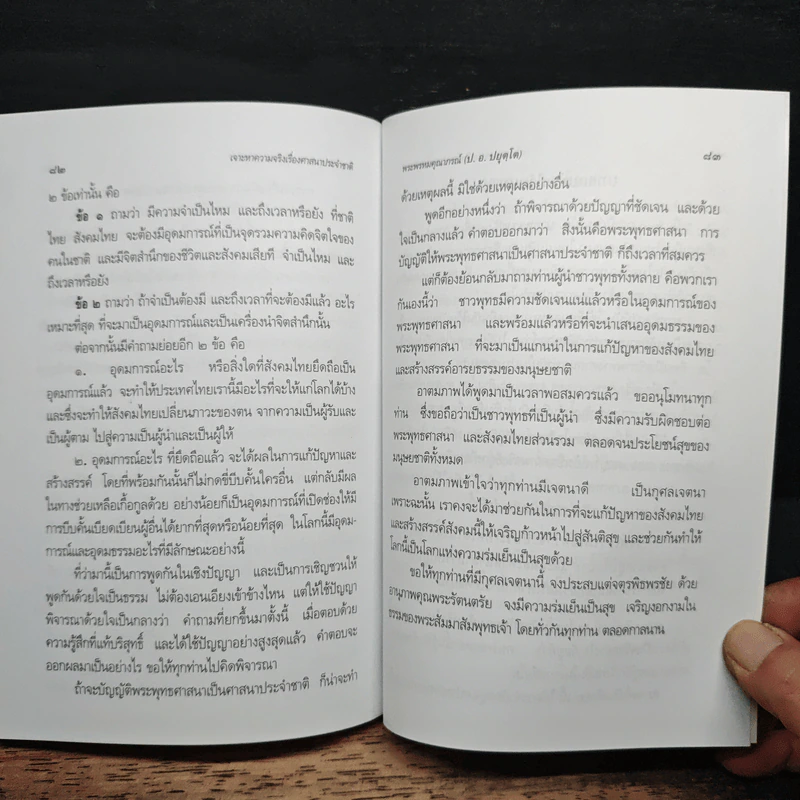 ๘๒
เจาะหาความจริงเรื่องศาสนาประจำชาติ
๒ ข้อเท่านั้น คือ
ข้อ ๑ ถามว่า มีความจำเป็นไหม และถึงเวลาหรือยัง ที่ชาติ
ไทย สังคมไทย จะต้องมีอุดมการณ์ที่เป็นจุดรวมความคิดจิตใจของ
คนในชาติ และมีจิตสำนึกของชีวิตและสังคมเสียที จำเป็นไหม และ
ถึงเวลาหรือยัง
ข้อ ๒ ถามว่า ถ้าจำเป็นต้องมี และถึงเวลาที่จะต้องมีแล้ว อะไร
เหมาะที่สุด ที่จะมาเป็นอุดมการณ์และเป็นเครื่องนำจิตสำนึกนั้น
ต่อจากนั้นมีคำถามย่อยอีก ๒ ข้อ คือ
๑. อุดมการณ์อะไร หรือสิ่งใดที่สังคมไทยยึดถือเป็น
อุดมการณ์แล้ว จะทำให้ประเทศไทยเรานี้มีอะไรที่จะให้แก่โลกได้บ้าง
และซึ่งจะทำให้สังคมไทยเปลี่ยนภาวะของตน จากความเป็นผู้รับและ
เป็นผู้ตาม ไปสู่ความเป็นผู้นำและเป็นผู้ให้
๒. อุดมการณ์อะไร ที่ยึดถือแล้ว จะได้ผลในการแก้ปัญหาและ
สร้างสรรค์ โดยที่พร้อมกันนั้นก็ไม่กดขี่บีบคั้นใครอื่น แต่กลับมีผล
ในทางช่วยเหลือเกื้อกูลด้วย อย่างน้อยก็เป็นอุดมการณ์ที่เปิดช่องให้มี
การบีบคั้นเบียดเบียนผู้อื่นได้ยากที่สุดหรือน้อยที่สุด ในโลกนี้มีอุดม-
การณ์และอุดมธรรมอะไรที่มีลักษณะอย่างนี้
ที่ว่ามานี้เป็นการพูดกันในเชิงปัญญา และเป็นการเชิญชวนให้
พูดกันด้วยใจเป็นธรรม ไม่ต้องเอนเอียงเข้าข้างไหน แต่ให้ใช้ปัญญา
พิจารณาด้วยใจเป็นกลางว่า คำถามที่ยกขึ้นมาตั้งนี้ เมื่อตอบด้วย
ความรู้สึกที่แท้บริสุทธิ์ และได้ใช้ปัญญาอย่างสูงสุดแล้ว คำตอบจะ
ออกผลมาเป็นอย่างไร ขอให้ทุกท่านไปคิดพิจารณา
ถ้าจะบัญญัติพระพุทธศาสนาเป็นศาสนาประจำชาติ ก็น่าจะทำ
พระพรหมคุณาภรณ์ (ป. อ. ปยุตฺโต)
๘๓
ด้วยเหตุผลนี้ มิใช่ด้วยเหตุผลอย่างอื่น
พูดอีกอย่างหนึ่งว่า ถ้าพิจารณาด้วยปัญญาที่ชัดเจน และด้วย
ใจเป็นกลางแล้ว คำตอบออกมาว่า สิ่งนั้นคือพระพุทธศาสนา การ
บัญญัติให้พระพุทธศาสนาเป็นศาสนาประจำชาติ ก็ถึงเวลาที่สมควร
แต่ก็ต้องย้อนกลับมาถามท่านผู้นำชาวพุทธทั้งหลาย คือพวกเรา
กันเองนี้ว่า ชาวพุทธมีความชัดเจนแน่แล้วหรือในอุดมการณ์ของ
พระพุทธศาสนา และพร้อมแล้วหรือที่จะนำเสนออุดมธรรมของ
พระพุทธศาสนา ที่จะมาเป็นแกนนำในการแก้ปัญหาของสังคมไทย
และสร้างสรรค์อารยธรรมของมนุษยชาติ
อาตมภาพได้พูดมาเป็นเวลาพอสมควรแล้ว ขออนุโมทนาทุก
ท่าน ซึ่งขอถือว่าเป็นชาวพุทธที่เป็นผู้นำ ซึ่งมีความรับผิดชอบต่อ
พระพุทธศาสนา และสังคมไทยส่วนรวม ตลอดจนประโยชน์สุขของ
มนุษยชาติทั้งหมด
อาตมภาพเข้าใจว่าทุกท่านมีเจตนาดี เป็นกุศลเจตนา
เพราะฉะนั้น เราคงจะได้มาช่วยกันในการที่จะแก้ปัญหาของสังคมไทย
และสร้างสรรค์สังคมนี้ให้เจริญก้าวหน้าไปสู่สันติสุข และช่วยกันทำให้
โลกนี้เป็นโลกแห่งความร่มเย็นเป็นสุขด้วย
ขอให้ทุกท่านที่มีกุศลเจตนานี้ จงประสบแต่จตุรพิธพรชัย ด้วย
อานุภาพคุณพระรัตนตรัย จงมีความร่มเย็นเป็นสุข เจริญงอกงามใน
ธรรมของพระสัมมาสัมพุทธเจ้า โดยทั่วกันทุกท่าน ตลอดกาลนาน